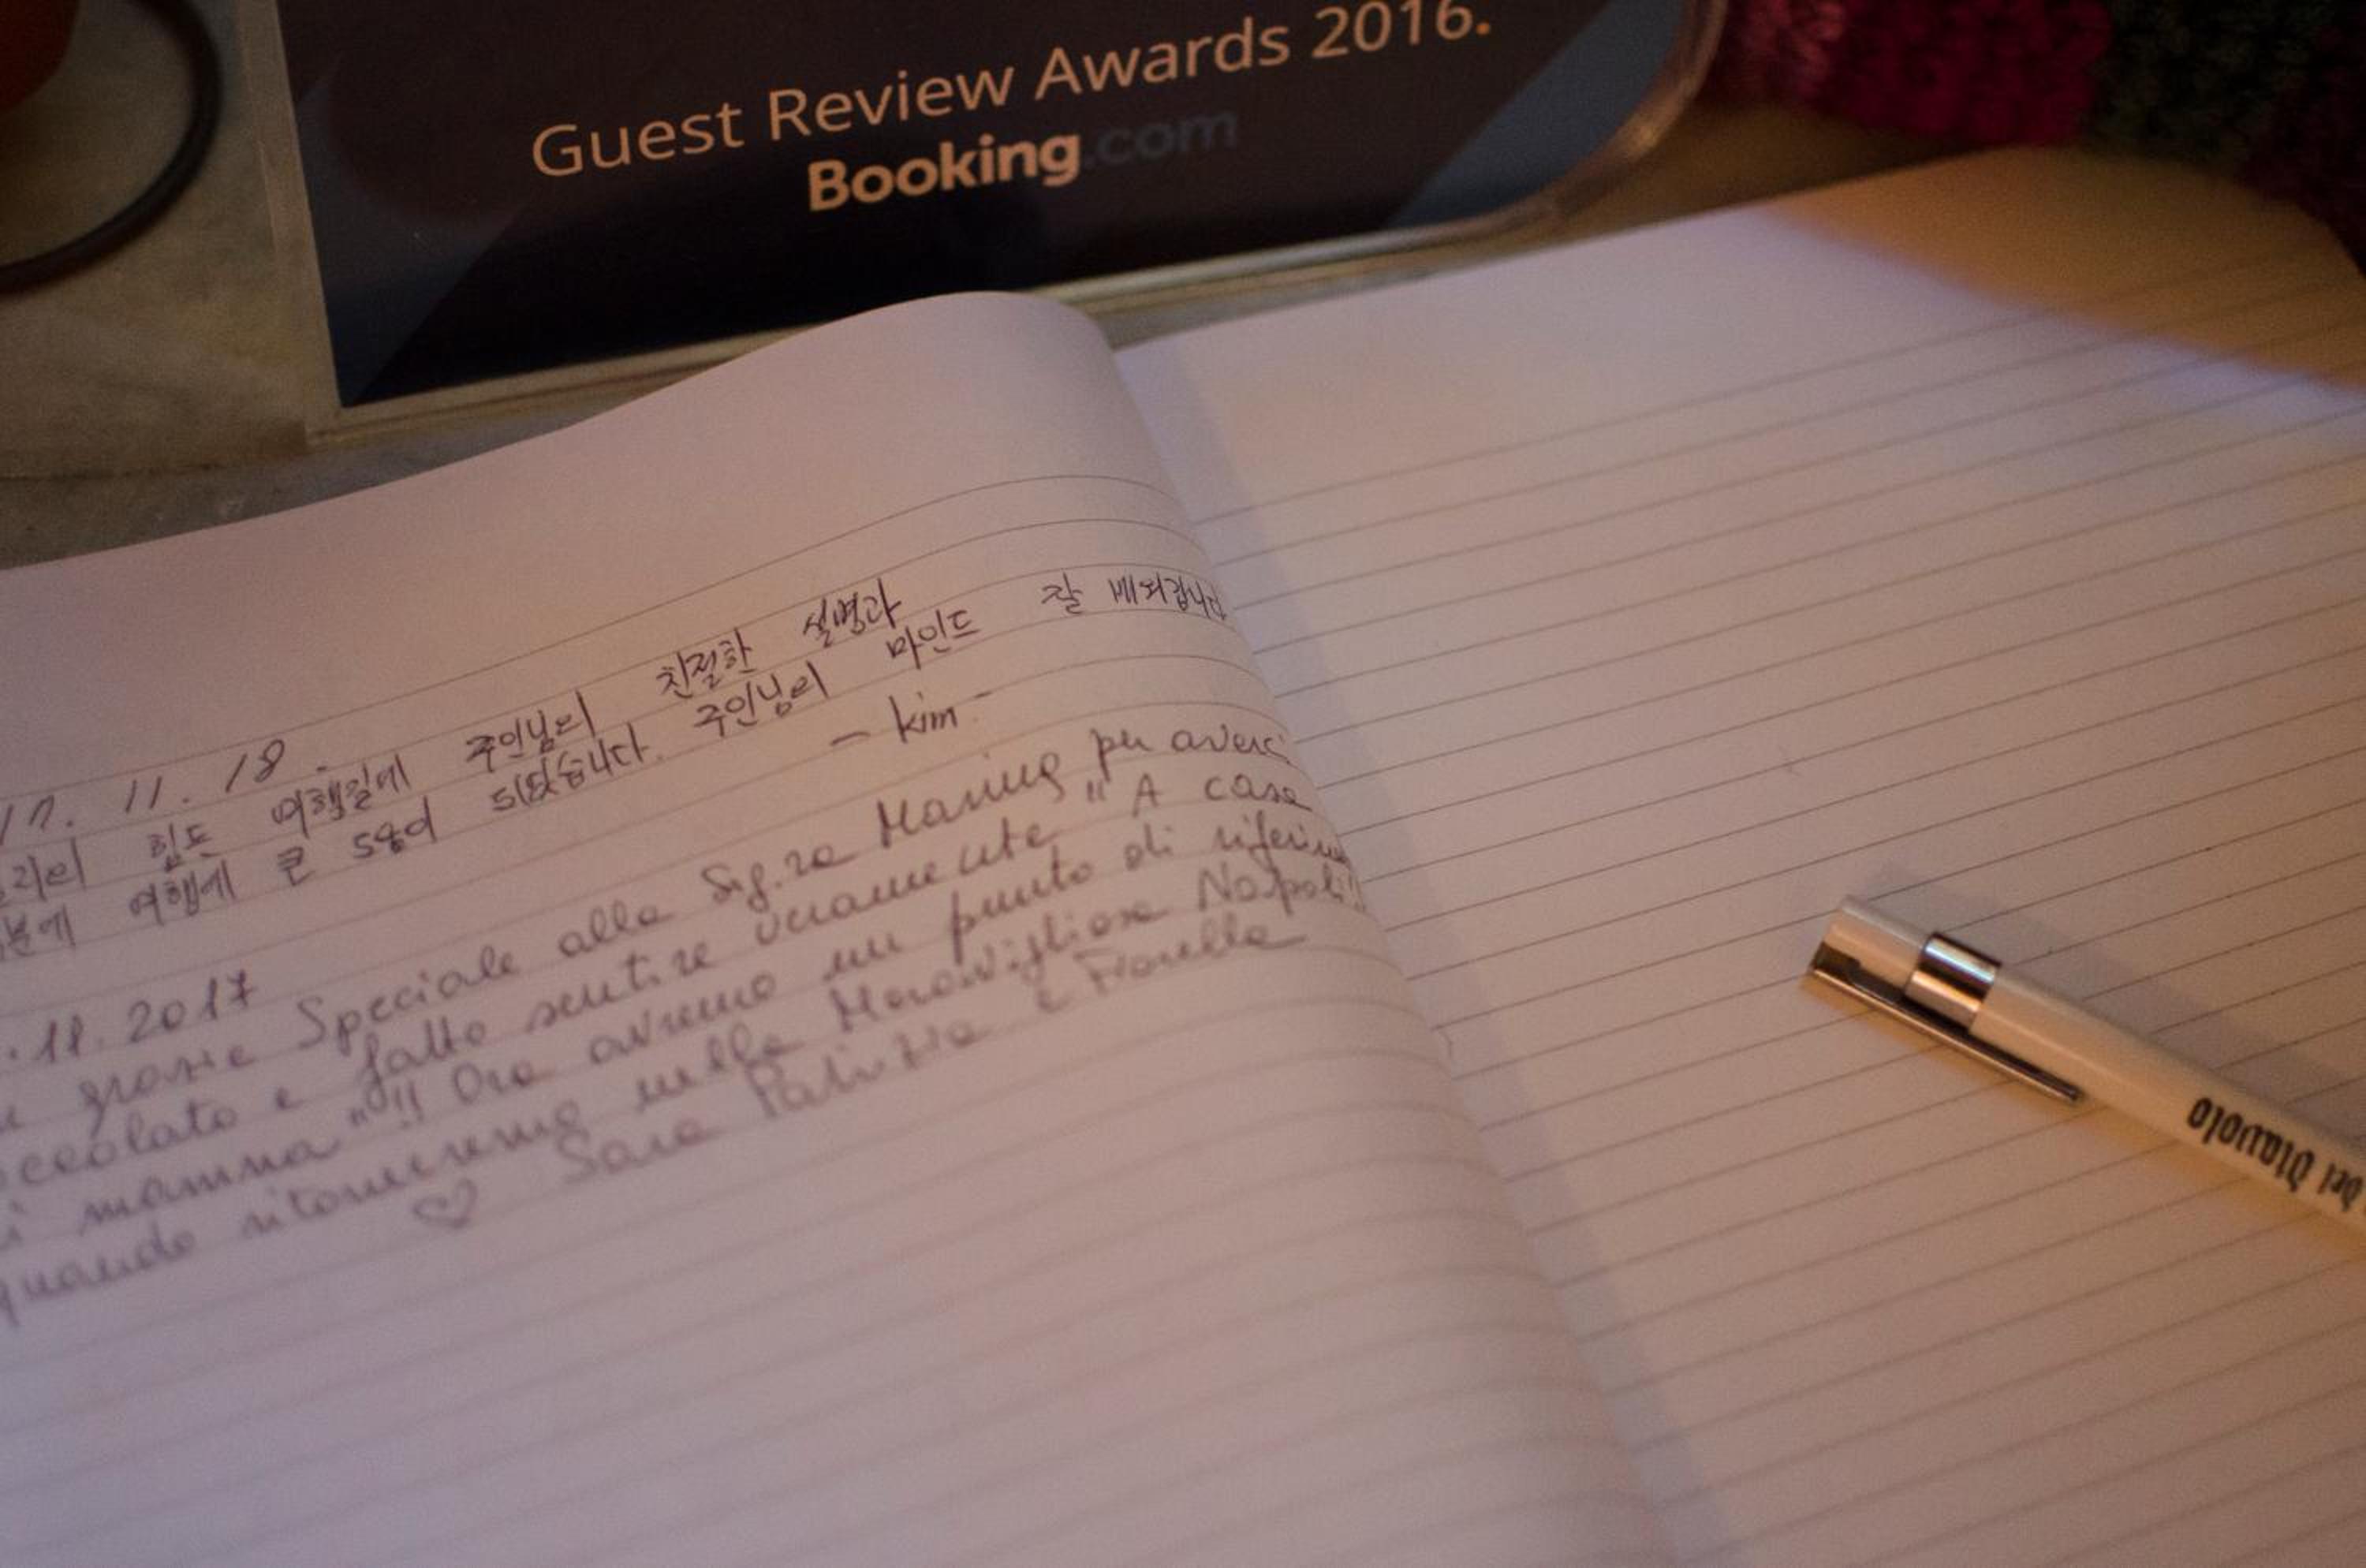 Guest Review Awards 2016.
Booking.com
17. 11. 18.
힘든 여행길에 주인님의 친절한 설명과
여행에 큰 도움이 되었습니다. 주인님의 마인드 잘 배워갑니다
- kim -
.11.2017
grazie Speciale alla Sig.ra Marina per averci
e fatto sentire veramente "A casa
di mamma"!! Ora avremo un punto di riferime
quando ritorneremo nella Meravigliosa Napoli!!
♡ Sara Patrizia e Fiorella
Del Diavolo